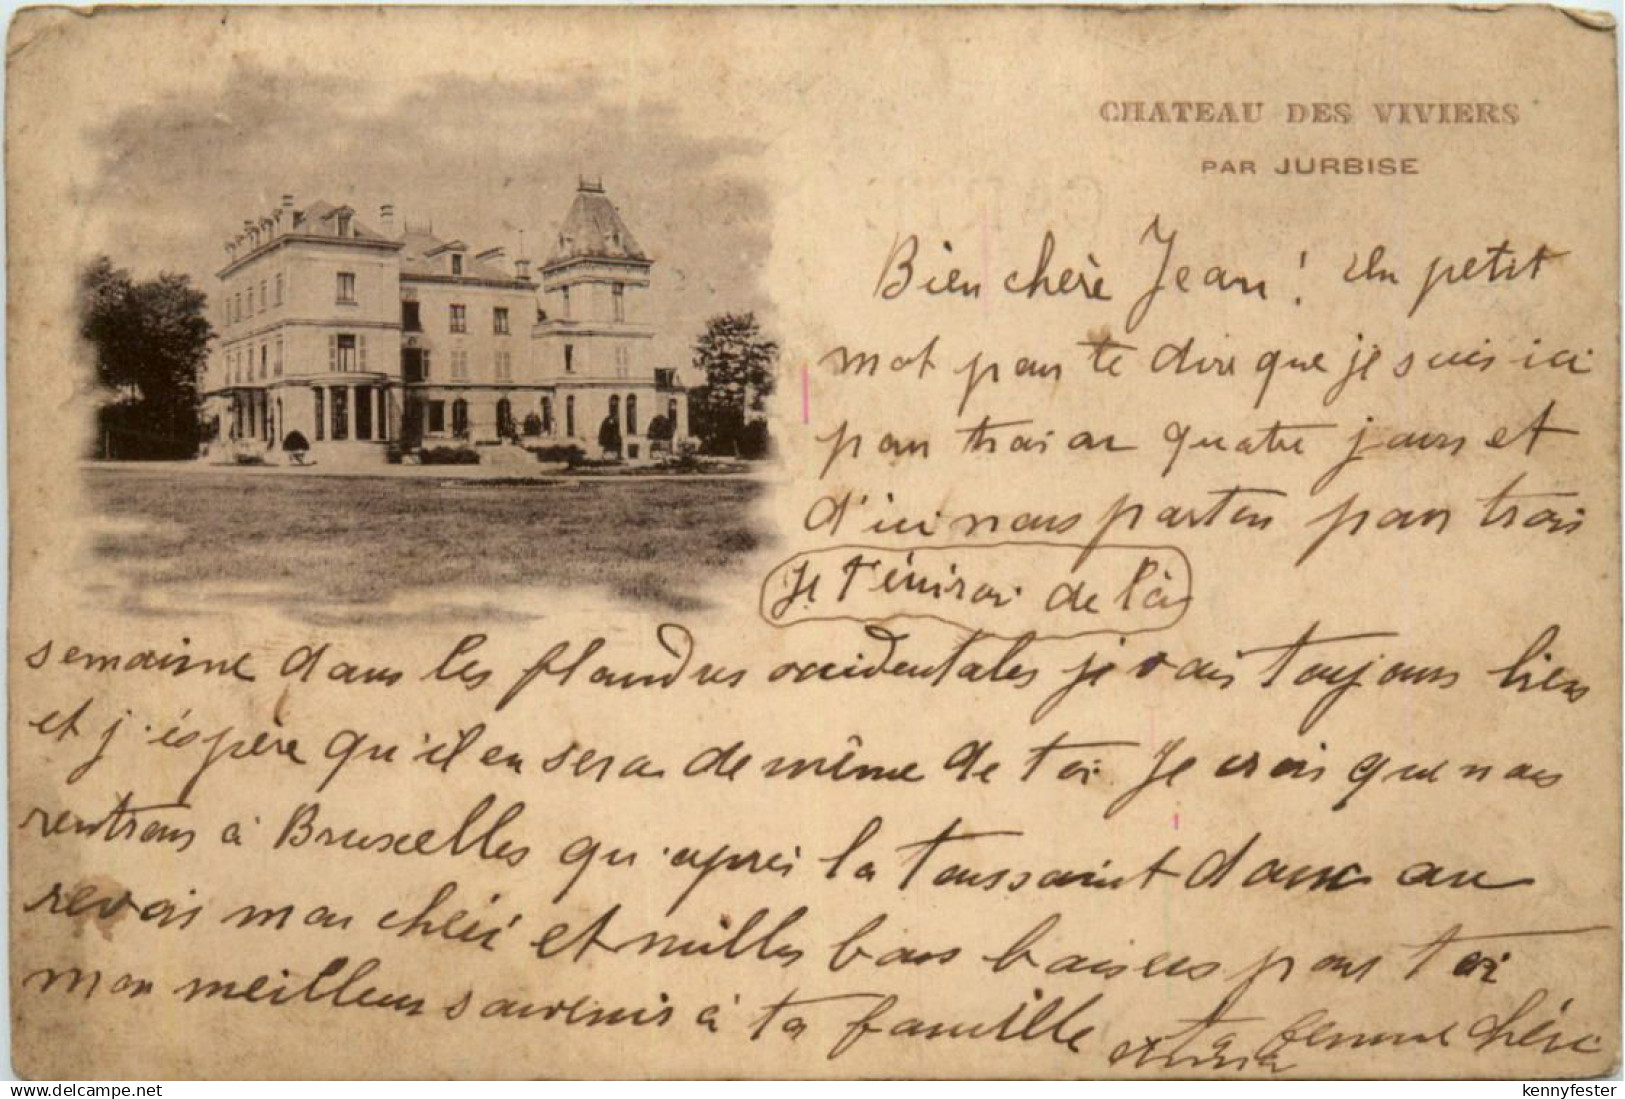 CHATEAU DES VIVIERS
PAR JURBISE
Bien chère Jean! Un petit
mot pour te dire que je suis ici
pour trois ou quatre jours et
d'ici nous parton pour trois
Je t'éniroi de là
semaine dans les flandres occidentales je vais toujours bien
et j'éspère qu'il en sera de même de toi Je crois que nous
rentrons à Bruxelles qu'après la Toussaint donc au
revois mon chéri et milles bons baisers pour toi
mon meilleur souvenir à ta famille ta femme chérie
delcampe.net
kennyfester